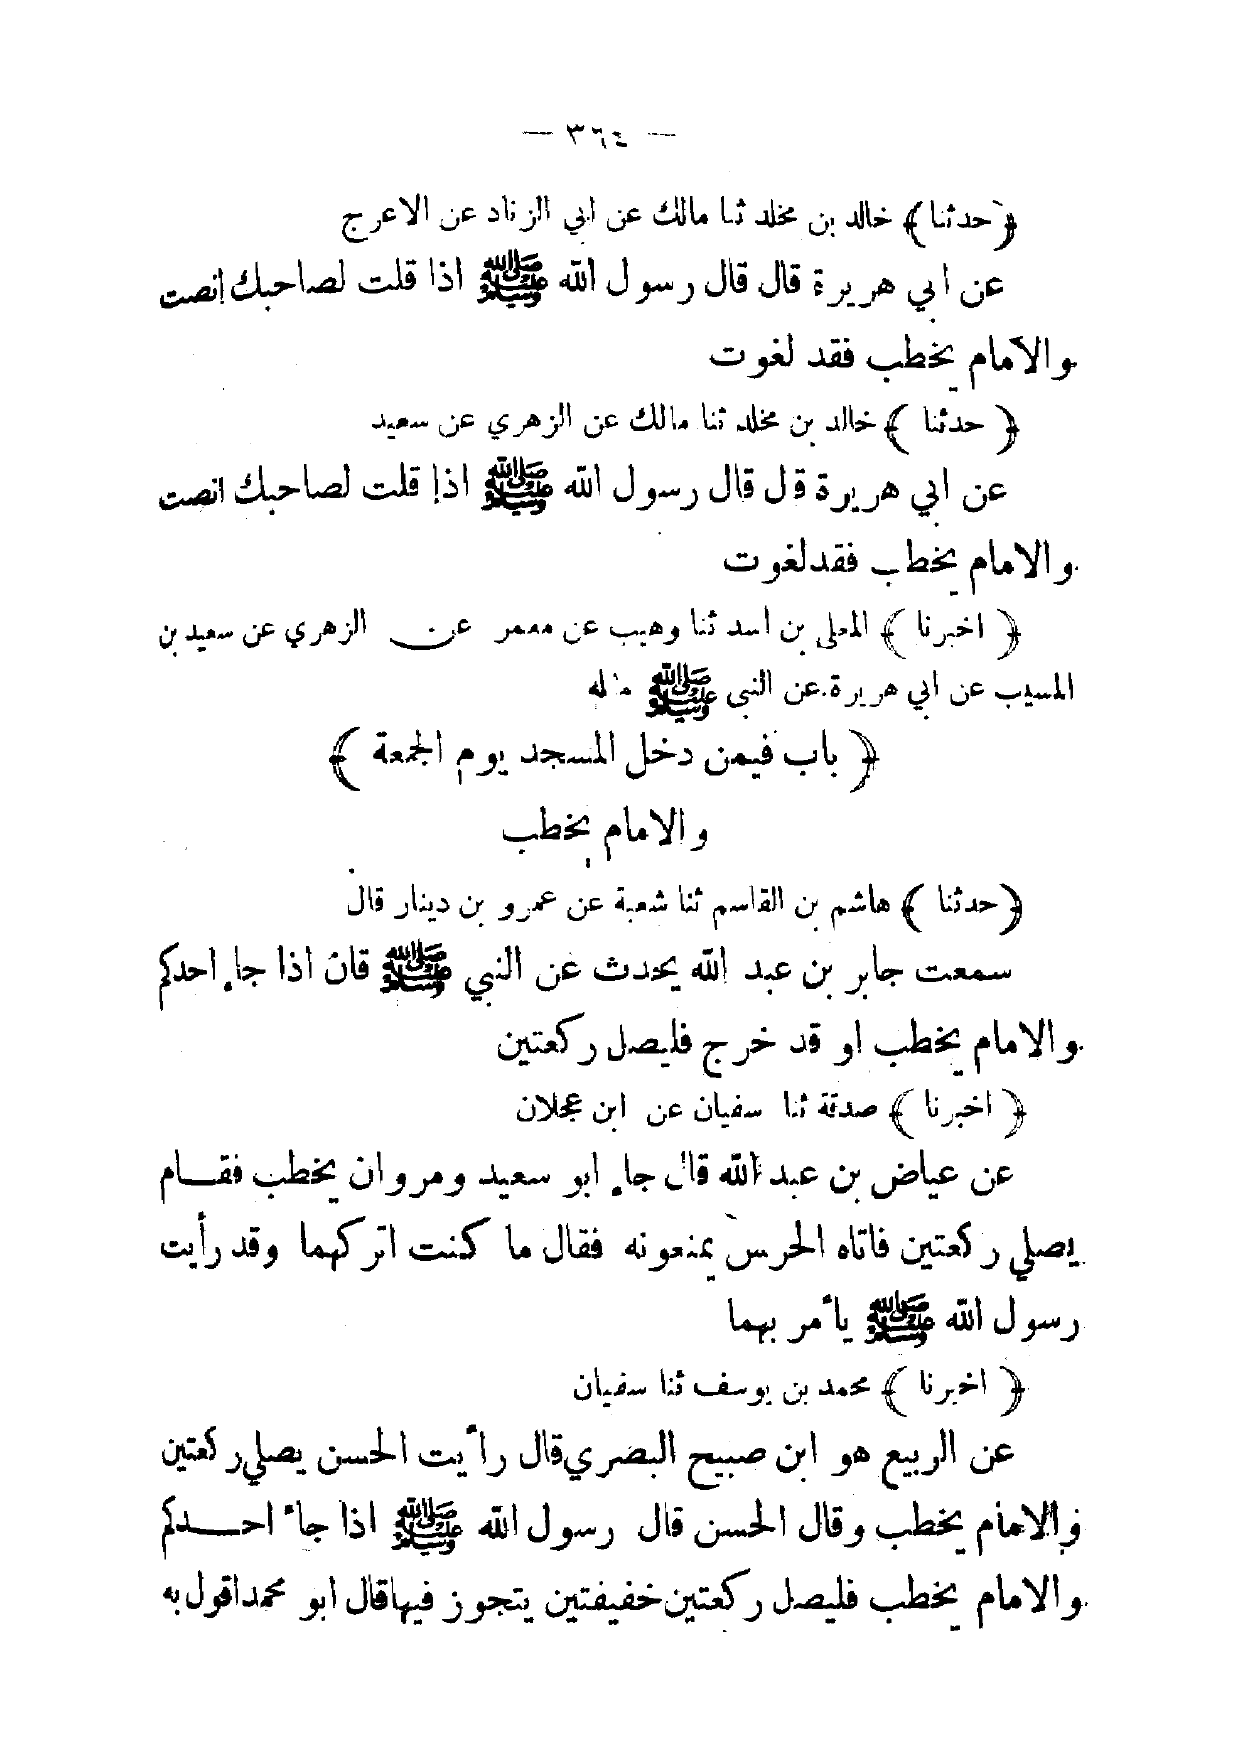 — ٣٦٤ —
﴿حدثنا﴾ خالد بن مخلد ثنا مالك عن ابي الزناد عن الاعرج
عن ابي هريرة قال قال رسول الله ﷺ اذا قلت لصاحبك انصت
والامام يخطب فقد لغوت
﴿ حدثنا ﴾ خالد بن مخلد ثنا مالك عن الزهري عن سعيد
عن ابي هريرة قل قال رسول الله ﷺ اذا قلت لصاحبك انصت
والامام يخطب فقد لغوت
﴿ اخبرنا ﴾ المعلى بن أسد ثنا وهيب عن معمر عن الزهري عن سعيد بن
المسيب عن ابي هريرة عن النبى ﷺ مثله
﴿ باب فيمن دخل المسجد يوم الجمعة ﴾
والامام يخطب
﴿حدثنا ﴾ هاشم بن القاسم ثنا شعبة عن عمرو بن دينار قال
سمعت جابر بن عبد الله يحدث عن النبي ﷺ قال اذا جاء احدكم
والامام يخطب او قد خرج فليصل ركعتين
﴿ اخبرنا ﴾ صدقة ثنا سفيان عن ابن عجلان
عن عياض بن عبد الله قال جاء ابو سعيد ومروان يخطب فقــام
يصلي ركعتين فاتاه الحرس يمنعونه فقال ما كنت اتركهما وقد رأيت
رسول الله ﷺ يأمر بهما
﴿ اخبرنا ﴾ محمد بن يوسف ثنا سفيان
عن الربيع هو ابن صبيح البصري قال رأيت الحسن يصلي ركعتين
والامام يخطب وقال الحسن قال رسول الله ﷺ اذا جاء احــدكم
والامام يخطب فليصل ركعتين خفيفتين يتجوز فيها قال ابو محمد اقول به